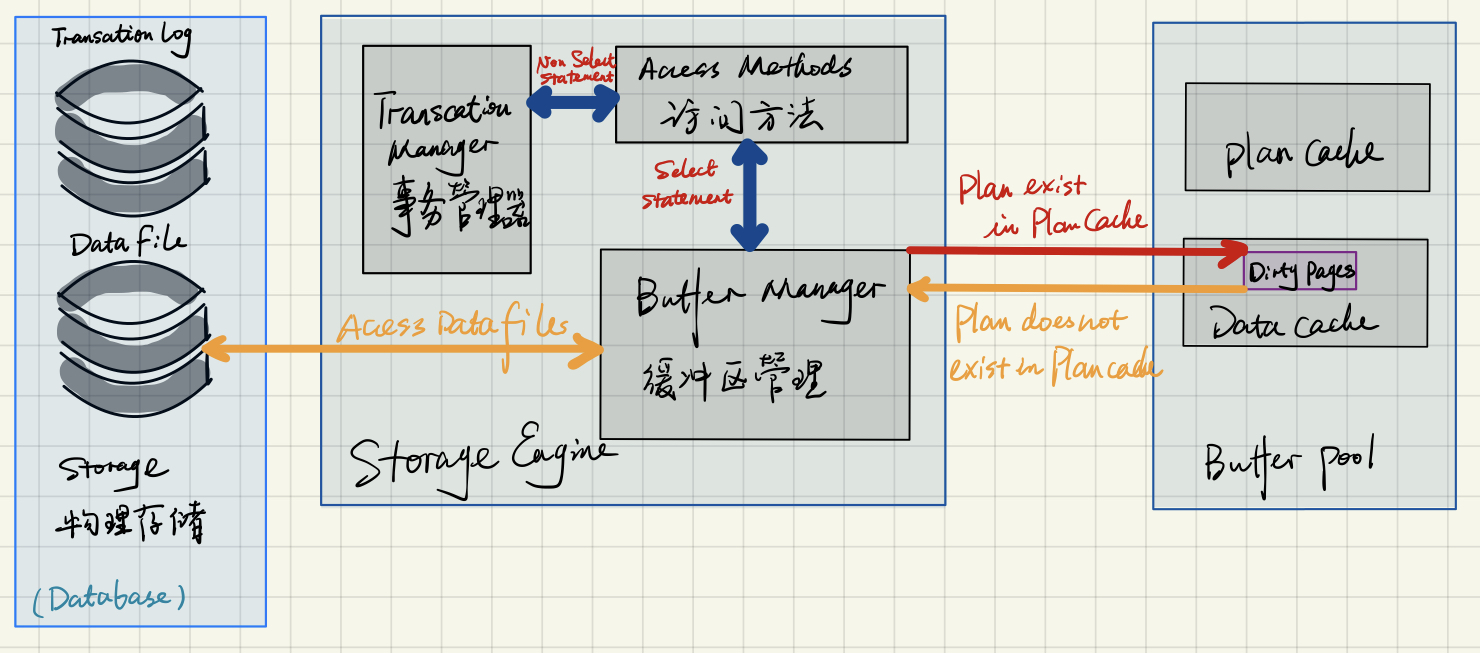 Transation Log
Data file
Storage
物理存储
(Database)
Transcation
Manager
事务管理器
Non Select
statement
Access Methods
访问方法
Select
statement
Buffer Manager
缓冲区管理
Access Data files
Storage Engine
Plan exist
in Plan Cache
Plan does not
exist in Plan cache
plan Cache
Dirty Pages
Data Cache
Buffer pool